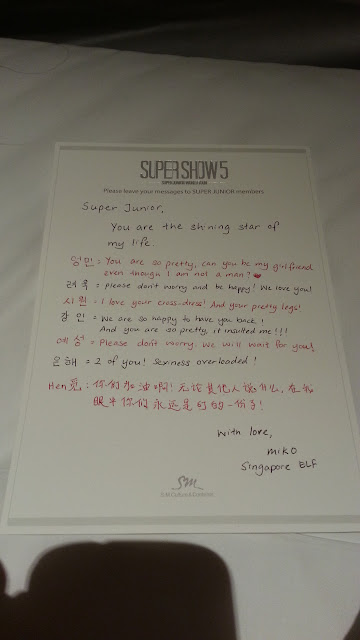 SUPER SHOW 5
SUPER JUNIOR WORLD TOUR
Please leave your messages to SUPER JUNIOR members
Super Junior,
You are the shining star of
my life.
성민 = You are so pretty, can you be my girlfriend
even though I am not a man?
려욱 = please don't worry and be happy! We love you!
시원 = I love your cross-dress! And your pretty legs!
강인 = We are so happy to have you back!
And you are so pretty, it me!!!
예성 = Please don't worry. We will wait for you!
은해 = 2 of you! Sexiness overloaded!
Hen觅: 你们加油啊! 无论其他人说什么, 在我
眼里你们永远是SJ的一份子!
With love,
miko
Singapore ELF
SM